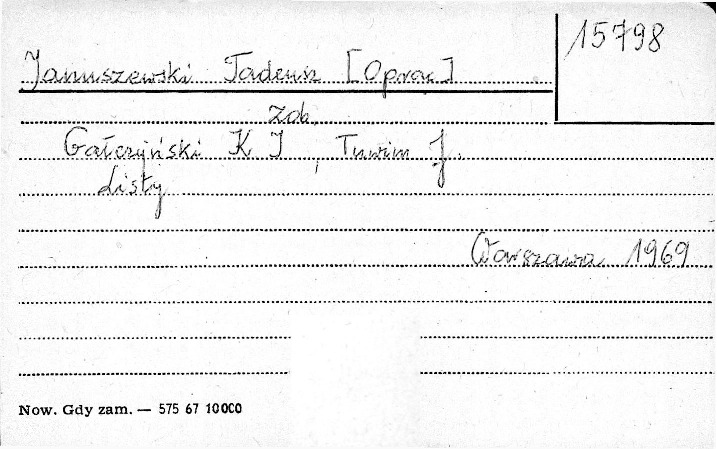 15798
Januszewski Tadeusz [Oprac]
Zob.
Gałczyński K I, Tuwim J.
Listy
Warszawa 1969
Now. Gdy zam. — 575 67 10000